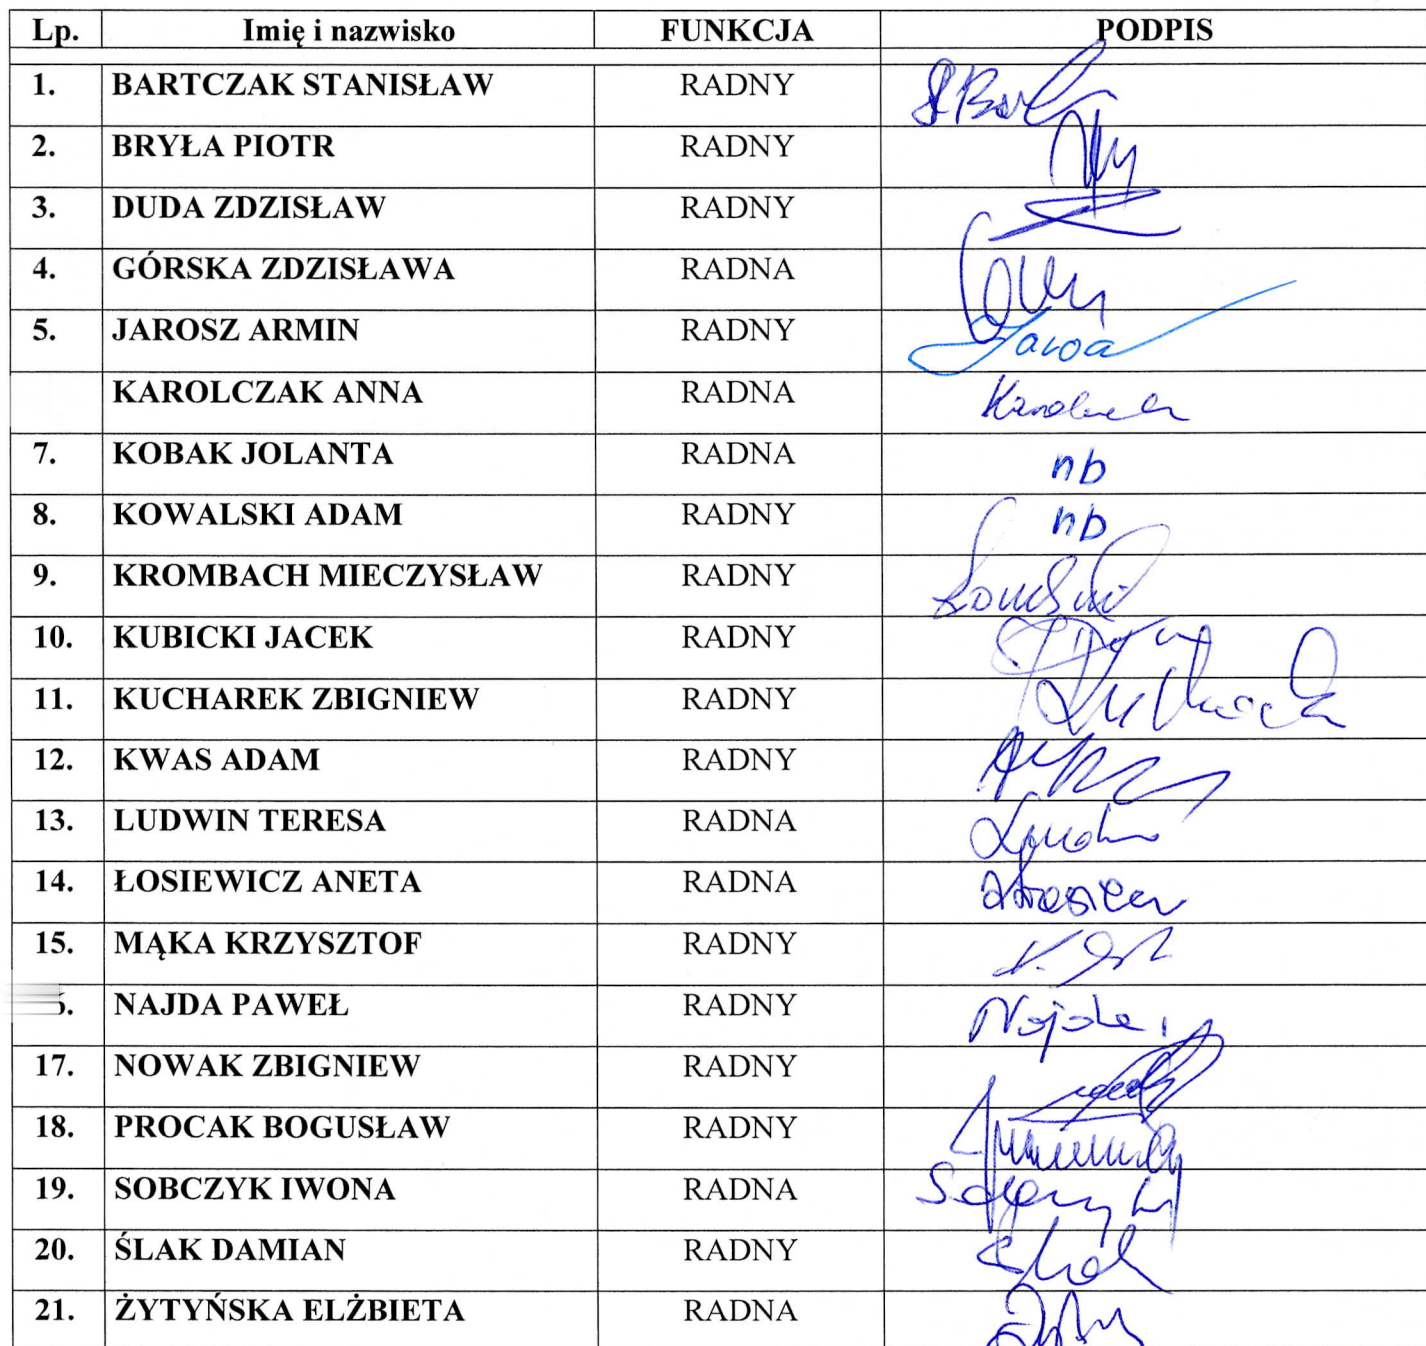 Lp. Imię i nazwisko FUNKCJA PODPIS
1. BARTCZAK STANISŁAW RADNY
2. BRYŁA PIOTR RADNY
3. DUDA ZDZISŁAW RADNY
4. GÓRSKA ZDZISŁAWA RADNA
5. JAROSZ ARMIN RADNY
KAROLCZAK ANNA RADNA
7. KOBAK JOLANTA RADNA nb
8. KOWALSKI ADAM RADNY nb
9. KROMBACH MIECZYSŁAW RADNY
10. KUBICKI JACEK RADNY
11. KUCHAREK ZBIGNIEW RADNY
12. KWAS ADAM RADNY
13. LUDWIN TERESA RADNA
14. ŁOSIEWICZ ANETA RADNA
15. MĄKA KRZYSZTOF RADNY
NAJDA PAWEŁ RADNY
17. NOWAK ZBIGNIEW RADNY
18. PROCAK BOGUSŁAW RADNY
19. SOBCZYK IWONA RADNA
20. ŚLAK DAMIAN RADNY
21. ŻYTYŃSKA ELŻBIETA RADNA